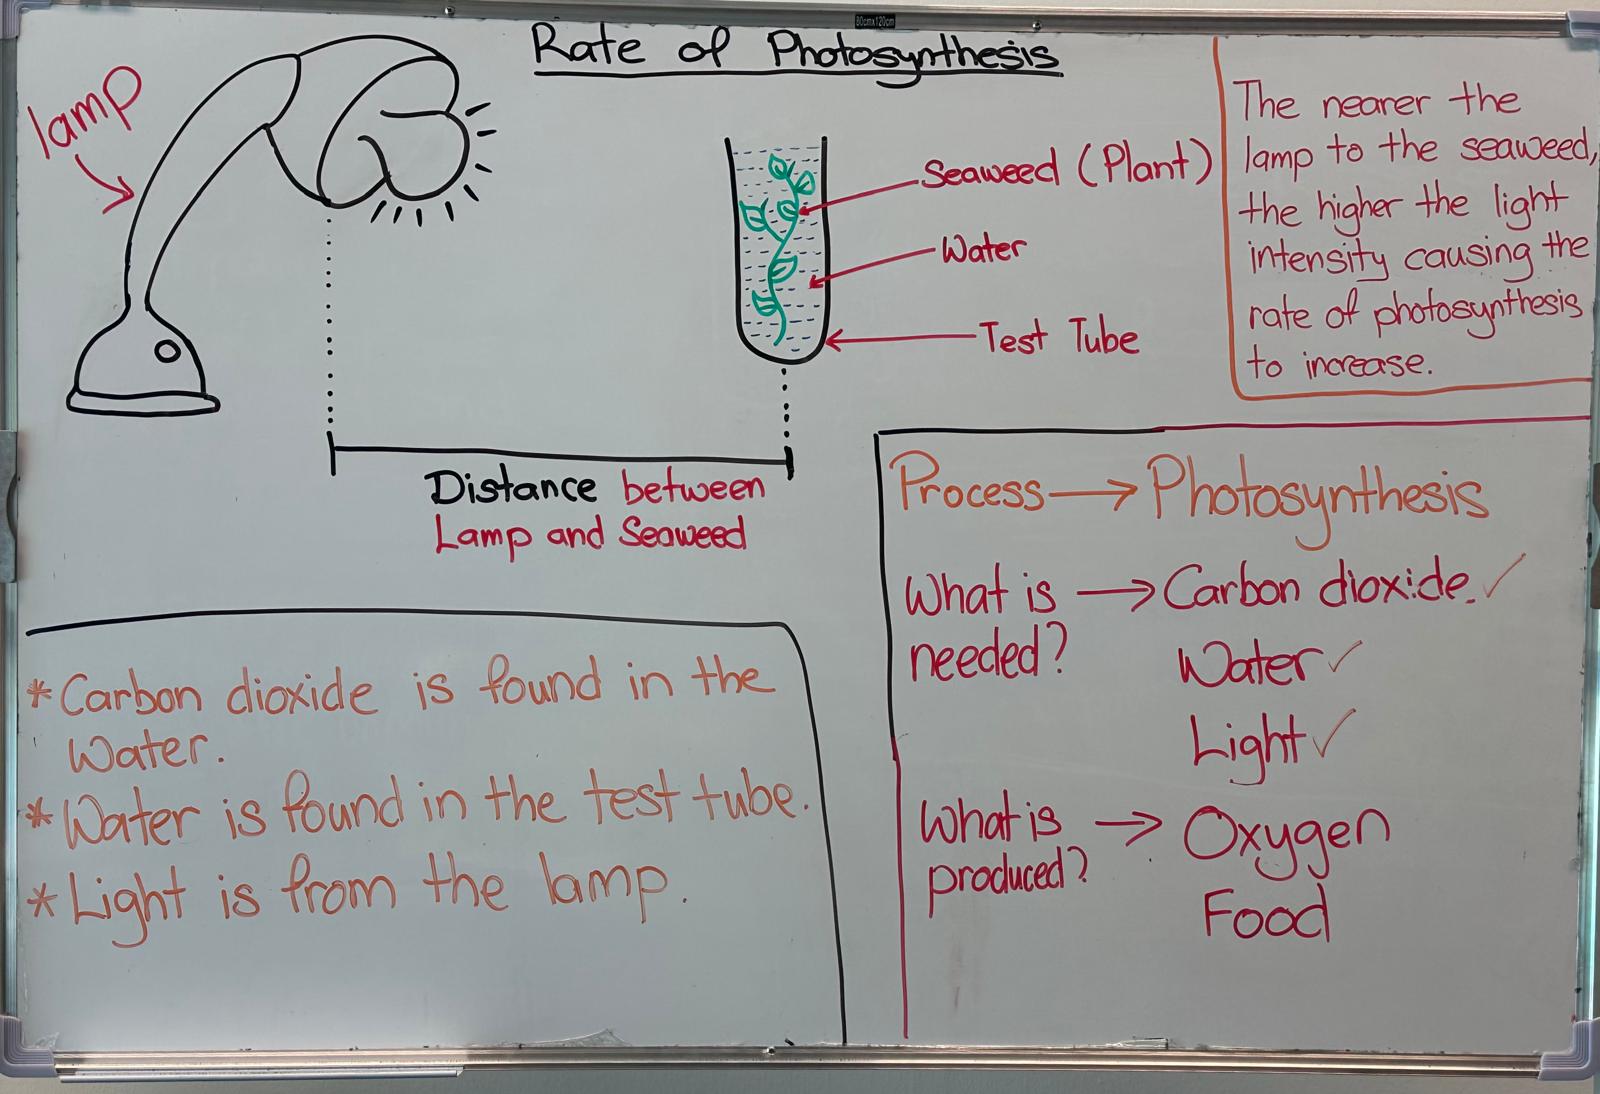 80cmx120cm
Rate of Photosynthesis
lamp
Seaweed (Plant)
Water
Test Tube
Distance between
Lamp and Seaweed
The nearer the
lamp to the seaweed,
the higher the light
intensity causing the
rate of photosynthesis
to increase.
* Carbon dioxide is found in the
Water.
* Water is found in the test tube.
* Light is from the lamp.
Process → Photosynthesis
What is → Carbon dioxide. ✓
needed?
Water ✓
Light ✓
What is → Oxygen
produced?
Food